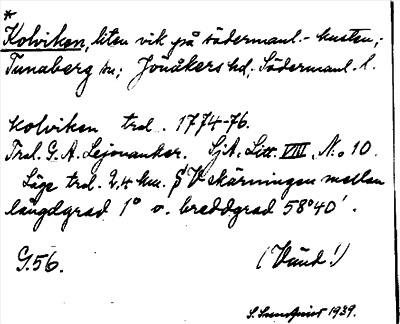 *
Kolviken, liten vik på södermanl.-kusten;
Tunaberg sn; Jönåkers hd; Södermanl. l.
Kolviken trol. 1774-76.
Trol. G. A. Lejonanker. SjA. Litt. VIII, N:o 10.
Läge trol. 2,4 km. S V skärningen mellan
längdgrad 1° o. breddgrad 58°40'.
G.56. (Vänd!)
S. 1939.